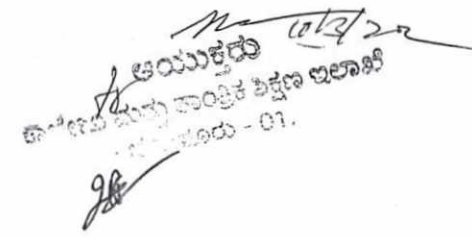 10/3/22
ಆಯುಕ್ತರು
ಕಾಲೇಜು ಮತ್ತು ತಾಂತ್ರಿಕ ಶಿಕ್ಷಣ ಇಲಾಖೆ
- 01.